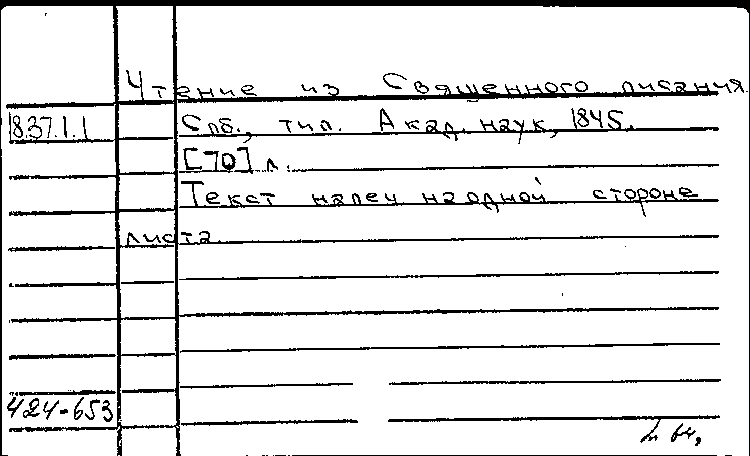 Чтение из Священного писания.
18.37.1.1 Спб., тип. Акад. наук, 1845.
[70] л.
Текст напеч на одной стороне
листа
424-653